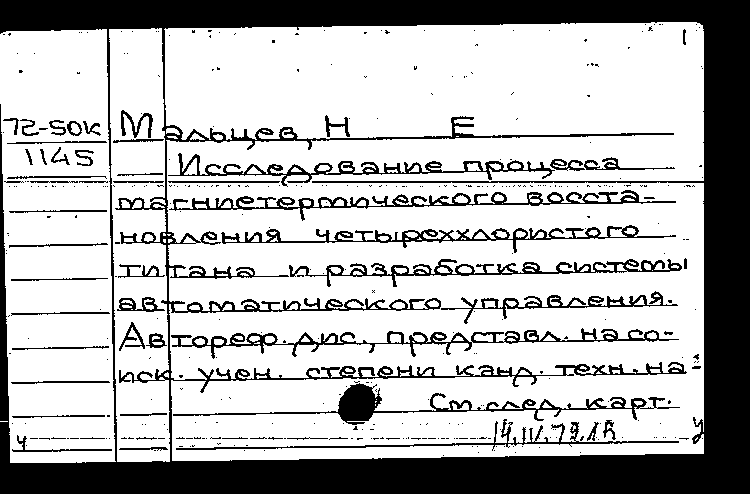 1
72-50к Мальцев, Н Е
1145 Исследование процесса
магниетермического восста-
новления четыреххлористого
титана и разработка системы
автоматического управления.
Автореф. дис., представл. на со-
иск. учен. степени канд. техн. на-
См. след. карт.
ч у